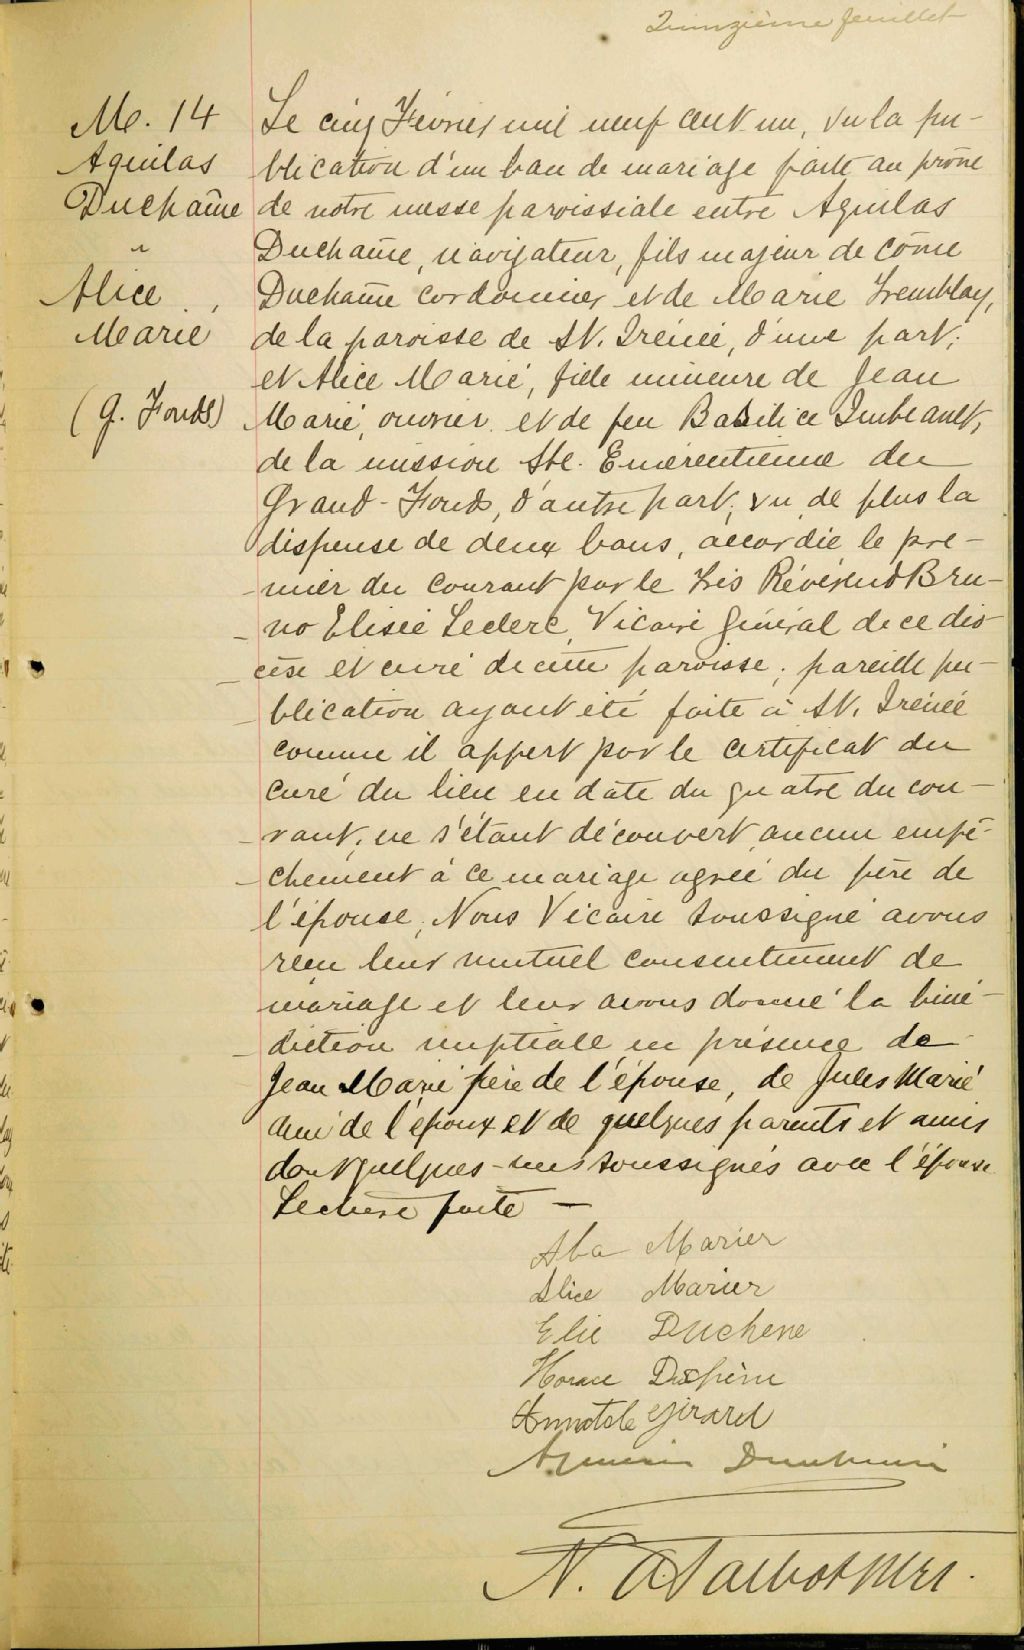 Quinzième feuillet
M. 14
Aquilas
Duchaîne
"
Alice
Marié
(G. Fonds)
Le cinq Février mil neuf cent un, vu la pu-
blication d'un ban de mariage faite au prône
de notre messe paroissiale entre Aquilas
Duchaîne, navigateur, fils majeur de Côme
Duchaîne cordonnier et de Marie Tremblay,
de la paroisse de St. Irénée, d'une part;
et Alice Marié, fille mineure de Jean
Marié, ouvrier et de feu Basilice Imbeault,
de la mission Ste. Emérentienne du
Grand-Fonds, d'autre part; vu de plus la
dispense de deux bans, accordée le pre-
-mier du courant par le Très Révérend Bru-
-no Elisée Leclerc, Vicaire Général de ce dio-
-cèse et curé de cette paroisse; pareille pu-
-blication ayant été faite à St. Irénée
comme il appert par le certificat du
curé du lieu en date du quatre du cou-
-rant; ne s'étant découvert aucun empê-
-chement à ce mariage agréé du père de
l'épouse, Nous Vicaire soussigné avons
reçu leur mutuel consentement de
mariage et leur avons donné la béné-
-diction nuptiale en présence de
Jean Marié père de l'épouse, de Jules Marié
ami de l'époux et de quelques parents et amis
dont quelques-uns soussignés avec l'épouse
Lecture faite —
Alba Marier
Alice Marier
Elie Duchene
Horace
Girard
N. A Talbot Ptre.